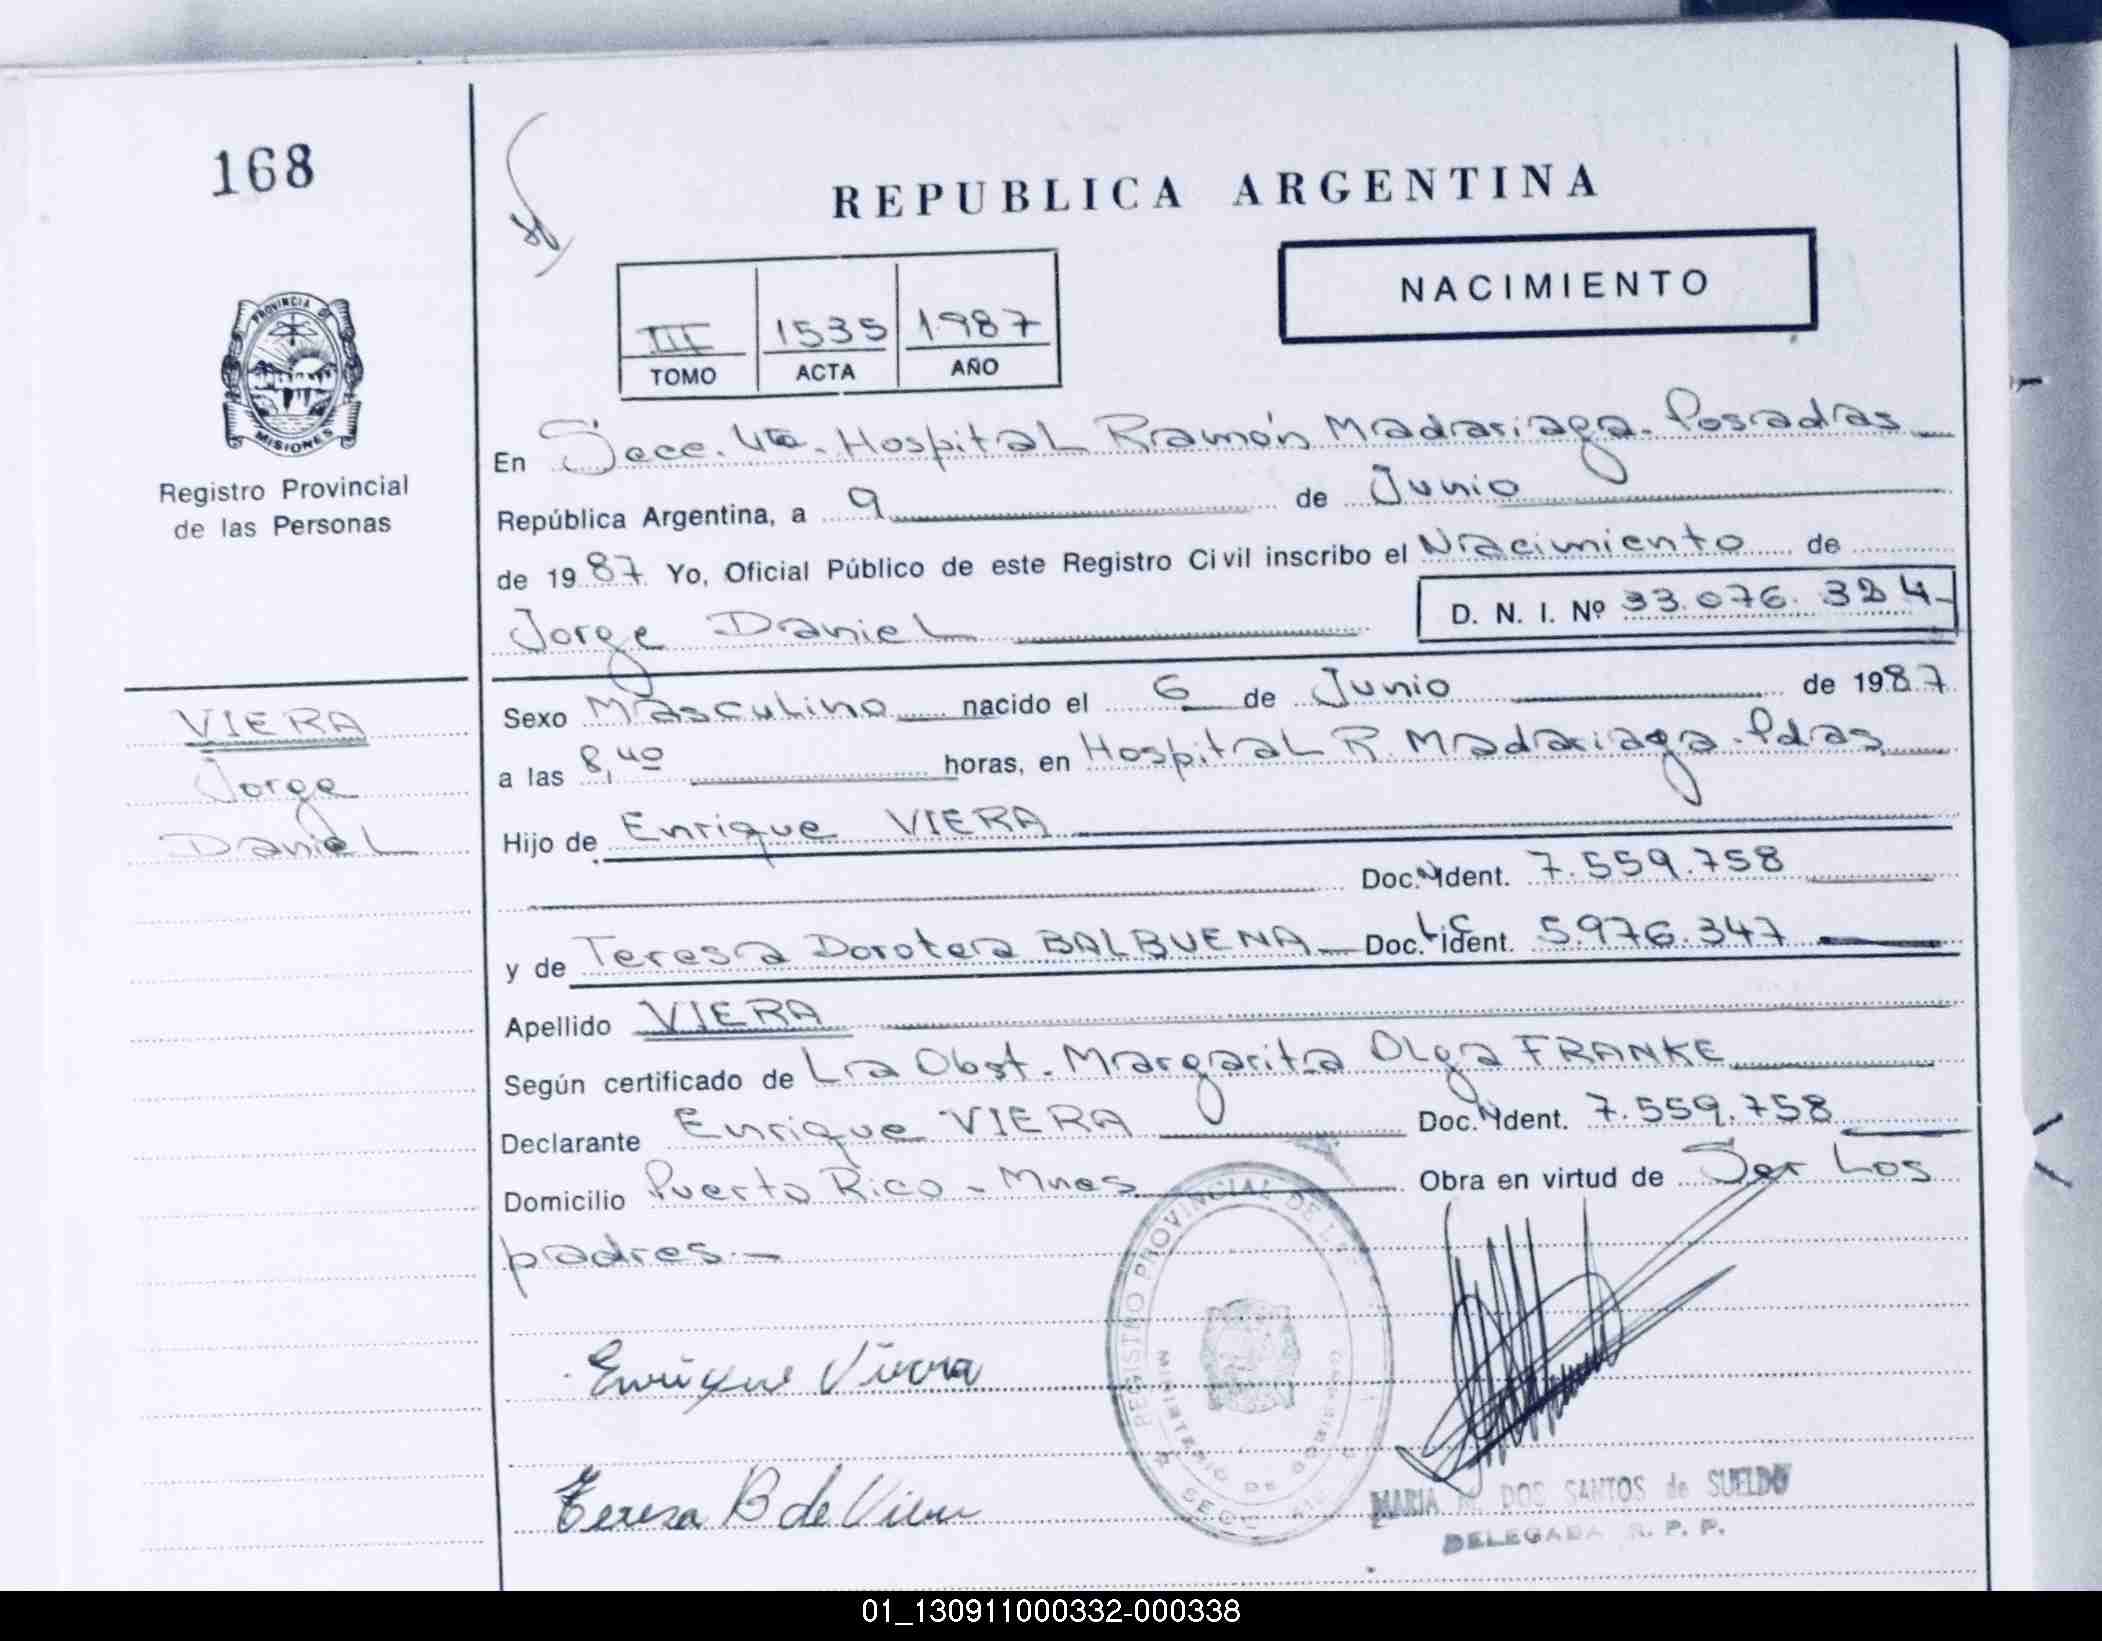 168
REPUBLICA ARGENTINA
NACIMIENTO
III 1535 1987
TOMO ACTA AÑO
PROVINCIA DE
MISIONES
Registro Provincial
de las Personas
En Secc. 4ta. Hospital Ramón Madariaga. Posadas
República Argentina, a 9 de Junio
de 1987 Yo, Oficial Público de este Registro Civil inscribo el Nacimiento de
Jorge Daniel D. N. I. Nº 33.076.324-
VIERA
Jorge
Daniel
Sexo Masculino nacido el 6 de Junio de 1987
a las 8,40 horas, en Hospital R. Madariaga. Pdas
Hijo de Enrique VIERA
Doc. Ident. 7.559.758
y de Teresa Dorotea BALBUENA Doc. LC Ident. 5.976.347
Apellido VIERA
Según certificado de La Obst. Margarita Olga FRANKE
Declarante Enrique VIERA Doc. Ident. 7.559.758
Domicilio Puerto Rico - Mnes Obra en virtud de Ser Los
padres.-
REGISTRO PROVINCIAL DE LAS
MINISTERIO DE GOBIERNO
SECC.
Enrique Viera
Teresa B de Viera
MARIA DOS SANTOS de SUELDO
DELEGADA R. P. P.
01_130911000332-000338